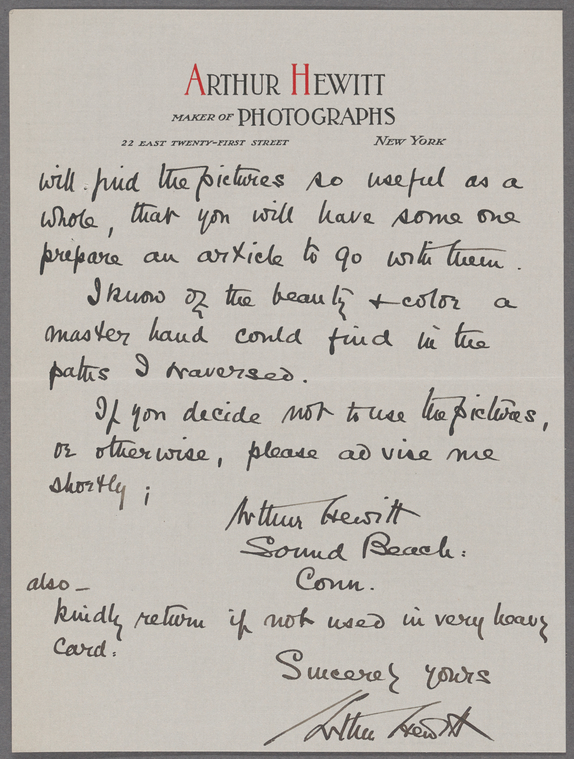 ARTHUR HEWITT
MAKER OF PHOTOGRAPHS
22 EAST TWENTY-FIRST STREET NEW YORK
will find the pictures so useful as a
whole, that you will have some one
prepare an article to go with them.
I know of the beauty + color a
master hand could find in the
paths I traversed.
If you decide not to use the pictures,
or otherwise, please advise me
shortly;
Arthur Hewitt
Sound Beach:
Conn.
also—
kindly return if not used in very heavy
card:
Sincerely yours
Arthur Hewitt